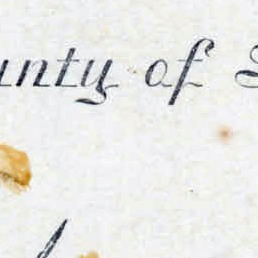 unty of